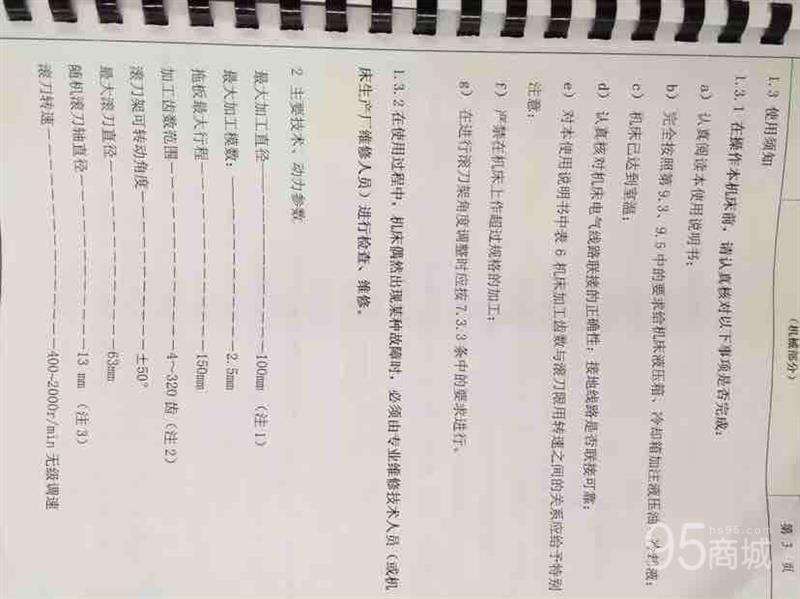 （机械部分）
第 3 页
1.3 使用须知
1.3.1 在操作本机床前，请认真核对以下事项是否完成：
a) 认真阅读本使用说明书；
b) 完全按照第9.3、9.5中的要求给机床液压箱、冷却箱加注液压油、冷却液；
c) 机床已达到室温；
d) 认真核对机床电气线路联接的正确性；接地线路是否联接可靠；
e) 对本使用说明书中表 6 机床加工齿数与滚刀限用转速之间的关系应给予特别
注意；
f) 严禁在机床上作超过规格的加工；
g) 在进行滚刀架角度调整时应按7.3.3 条中的要求进行。
1.3.2 在使用过程中，机床偶然出现某种故障时，必须由专业维修技术人员（或机
床生产厂维修人员）进行检查、维修。
2 主要技术、动力参数
最大加工直径——————————100mm（注 1）
最大加工模数：————————2.5mm
拖板最大行程——————————150mm
加工齿数范围——————————4～320 齿（注 2）
滚刀架可转动角度————————±50°
最大滚刀直径——————————63mm
随机滚刀轴直径—————————13 mm（注 3）
滚刀转速————————————400~2000r/min 无级调速
95商城
hs95.com